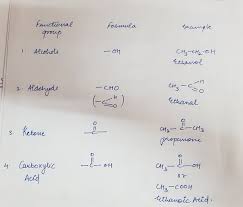 Functional group Formula Example
1. Alcohols —OH CH3—CH2—OH
Ethanol
2. Aldehyde —CHO CH3—C H O
(—C H O) Ethanal
3. Ketone O —C— O CH3—C—CH3
propanone
4. Carboxylic Acid O —C—OH O CH3—C—OH
or
CH3—COOH
Ethanoic Acid